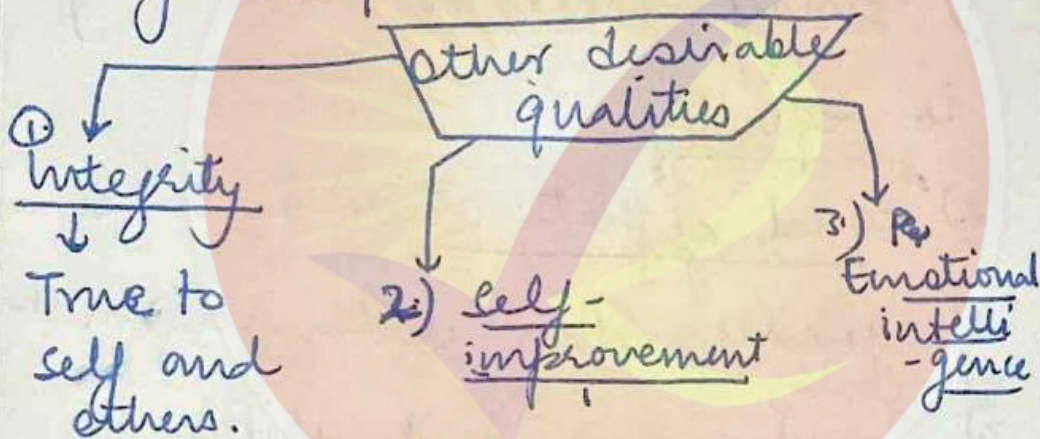 Other desirable
qualities
①
Integrity
↓
True to
self and
others.
2.) Self-
improvement
3.)
Emotional
intelli
-gence